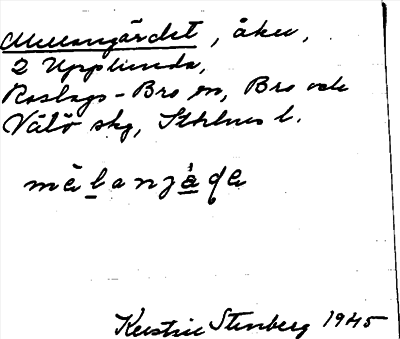 Mellangärdet, åker,
2 Upplunda,
Roslags-Bro sn, Bro och
Vätö skg, Sthlms l.
mèlanjáde
Kerstin Stenberg 1945